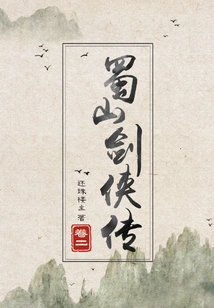 蜀山剑侠传
还珠楼主 著
卷二